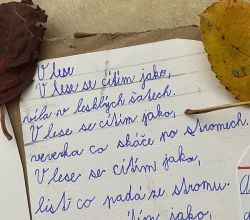 V lese
V lese se cítím jako,
víla v lesklých šatech.
V lese se cítím jako,
veverka co skáče po stromech.
V lese se cítím jako,
list co padá ze stromu.
cítím jako,